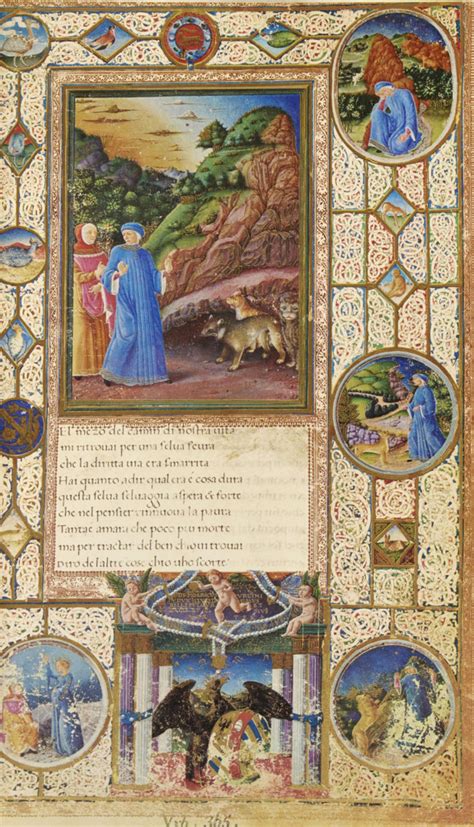 EL mezo del camin di nostra uita
mi ritrouai per una selua scura
che la diritta uia era smarrita
Hai quanto adir qual era e cosa dura
questa selua seluaggia aspera & forte
che nel pensier rinnoua la paura
Tantae amara che poco piu morte
ma per tractar del ben chio ui trouai
diro del altre cose chio
Vrb. 365.